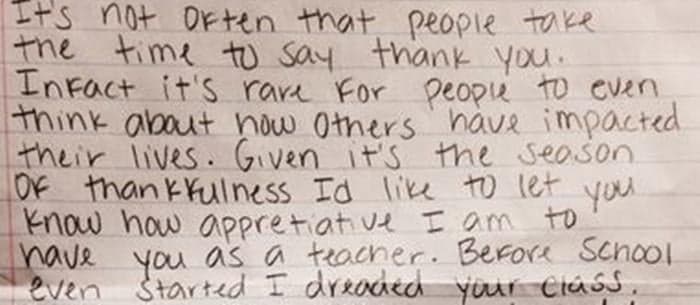 It's not often that people take
the time to say thank you.
Infact it's rare for people to even
think about how others have impacted
their lives. Given it's the season
of thankfulness Id like to let you
know how appretiative I am to
have you as a teacher. Before School
even started I dreaded your class.